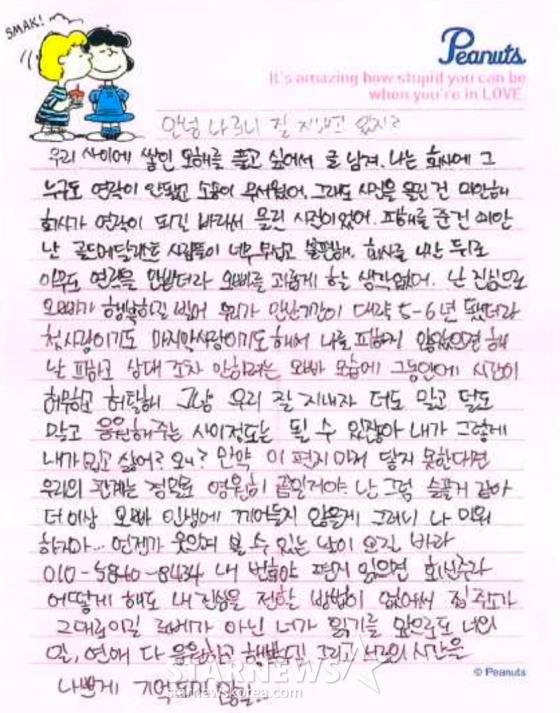 SMAK!
Peanuts
It's amazing how stupid you can be
when you're in LOVE.
안녕 나르니 잘 지내고 있지?
우리 사이에 쌓인 오해를 풀고 싶어서 글 남겨. 나는 회사에 그
누구도 연락이 안됐고 소송이 무서웠어. 그래도 사진을 올린 건 미안해
회사가 연락이 되길 바래서 올린 사진이었어. 피해를 준건 미안
난 골드메달리스트 사람들이 너무 무섭고 불편해. 회사를 나간 뒤로
아무도 연락을 안받더라 오빠를 괴롭게 할 생각없어. 난 진심으로
오빠가 행복하길 빌어 우리가 만난기간이 대략 5-6년 됐더라
첫사랑이기도 마지막사랑이기도 해서 나를 피하지 않았으면 해
날 피하고 상대 조차 안하려는 오빠 모습에 그동안에 시간이
허무하고 허탈해 그냥 우리 잘 지내자 더도 말고 덜도
말고 응원해주는 사이정도는 될 수 있잖아 내가 그렇게
내가 밉고 싫어? 왜? 만약 이 편지 마저 닿지 못한다면
우리의 관계는 정말로 영원히 끝일거야. 난 그럼 슬플거 같아
더이상 오빠 인생에 끼어들지 않을게 그러니 나 미워
하지마... 언젠가 웃으며 볼 수 있는 날이 오길 바라
010-5840-8434 내 번호야 편지 읽으면 회신주라
어떻게 해도 내 진심을 전할 방법이 없어서 집 주소가
그대로이길 아닌 너가 읽기를 앞으로도 너의
일, 연애 다 응원하고 행복 그리고 시간을
나쁘게 기억
STARNEWS
starnewskorea.com
© Peanuts